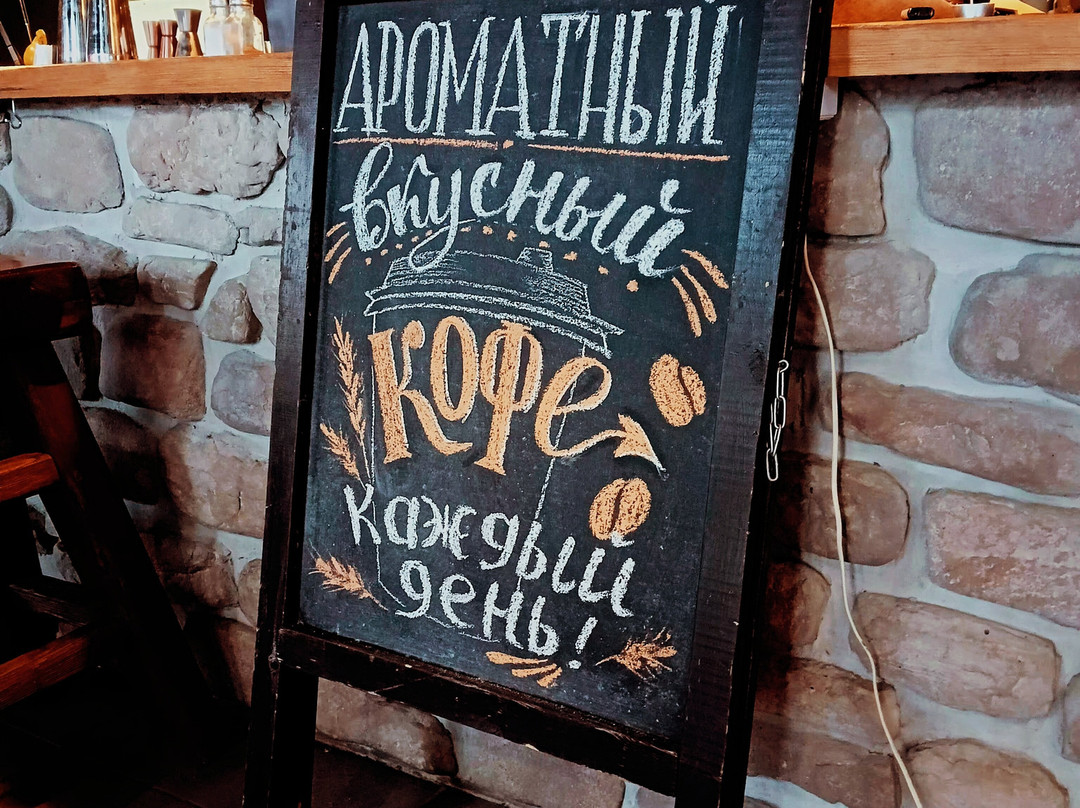 АРОМАТНЫЙ
вкусный
кофе
каждый
день!